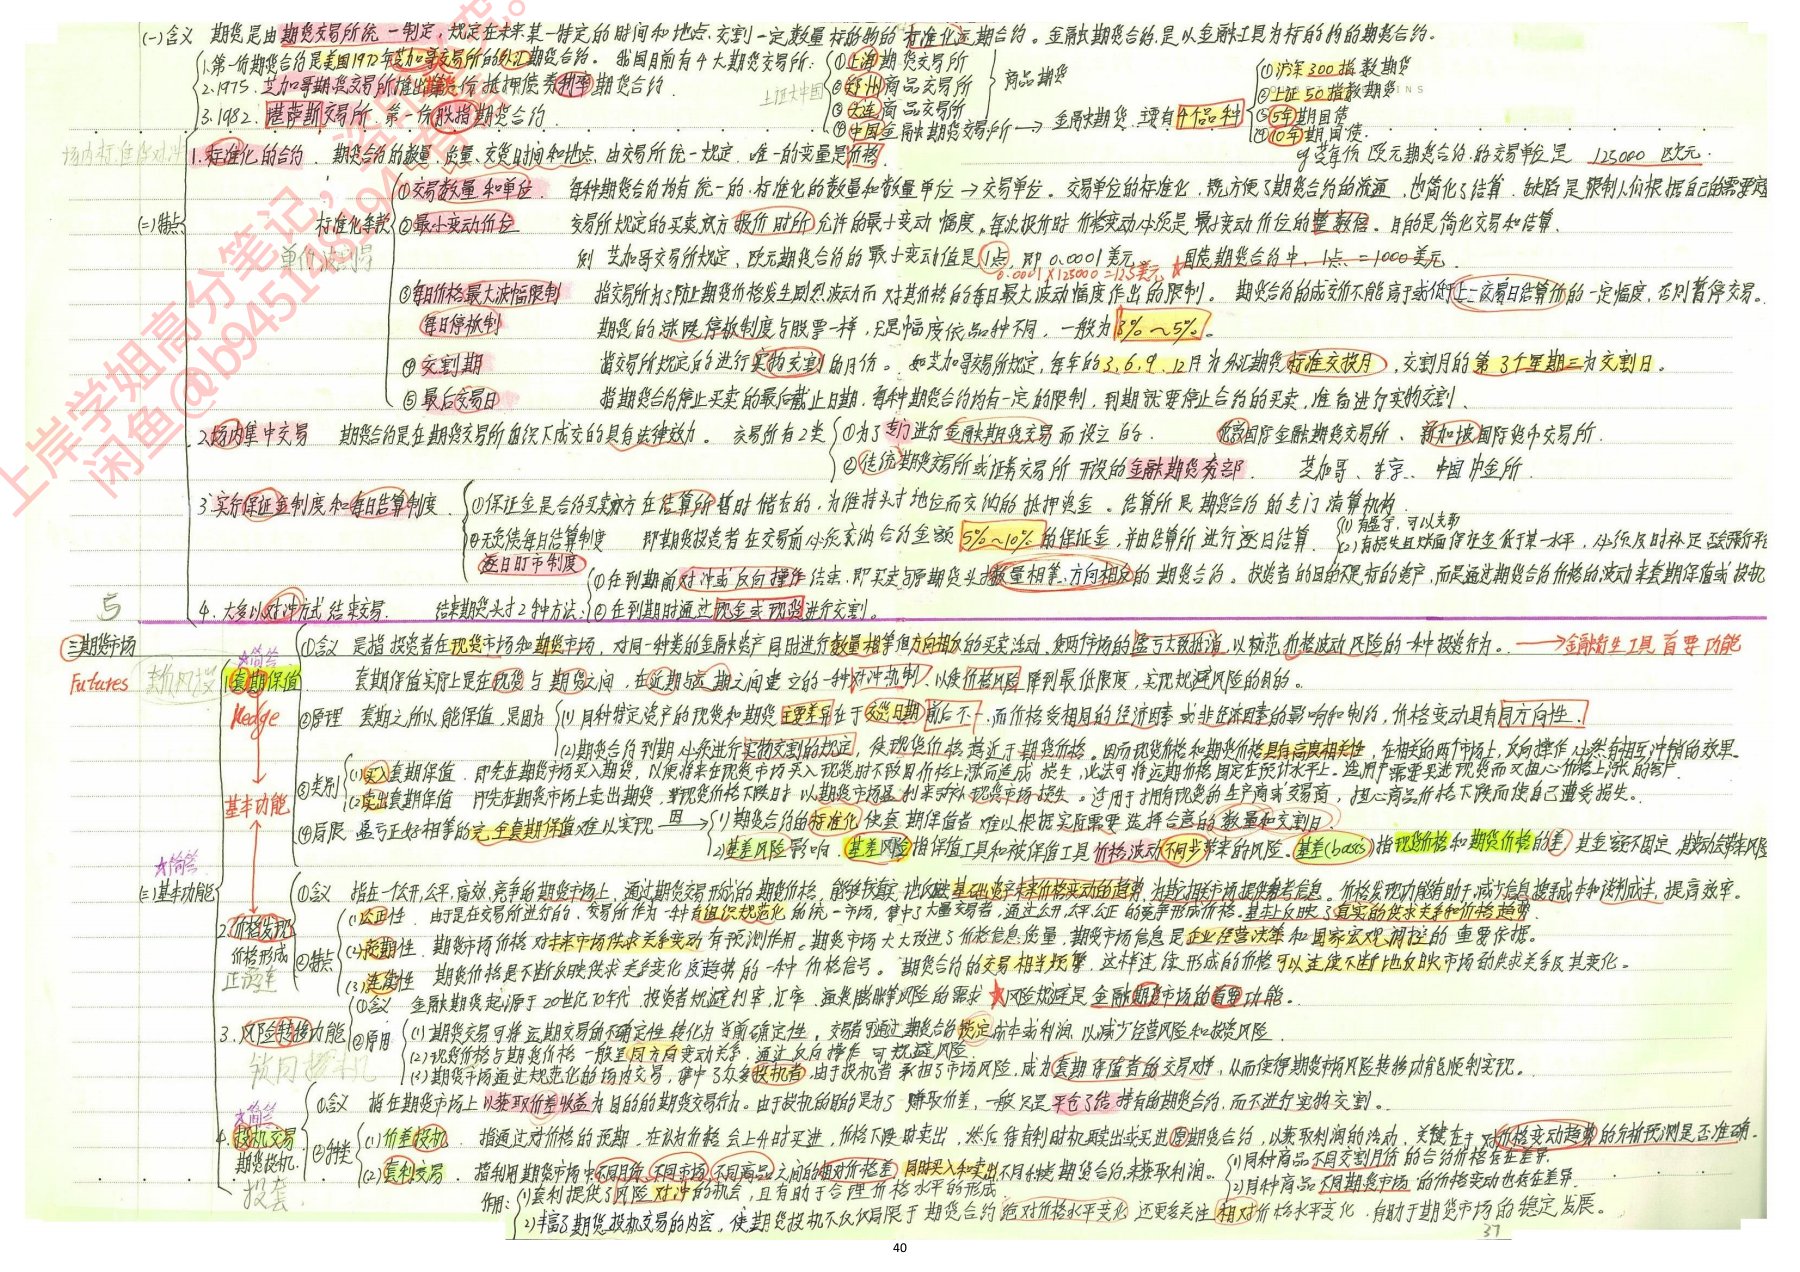 (一)含义 期货是由期货交易所统一制定,规定在未来某一特定的时间和地点、交割一定数量标的物的标准化远期合约。金融期货合约是以金融工具为标的物的期货合约。
1.第一份期货合约是美国1972年芝加哥交易所的外汇期货合约。我国目前有4大期货交易所:
①上海期货交易所
②郑州商品交易所
③大连商品交易所
商品期货
④中国金融期货交易所→金融期货.主要有4个品种
①沪深300指数期货
②上证50指数期货
③5年期国债
④10年期国债.
2.1975.芝加哥期货交易所推出第一份抵押债券利率期货合约.
3.1982.堪萨斯交易所.第一份股指期货合约.
上证大中国
(二)特点
1.标准化的合约. 期货合约的数量、质量、交货时间和地点.由交易所统一规定.唯一的变量是价格.
eg芝月份 欧元期货合约.的交易单位是 125000 欧元.
标准化条款
单价波割最
①交易数量和单位. 每种期货合约均有统一的.标准化的数量和数量单位→交易单位。交易单位的标准化.既方便了期货合约的流通.也简化了结算.缺陷是限制人们根据自己的需要定
②最小变动价位 交易所规定的买卖双方报价时所允许的最小变动幅度。每次报价时价格变动必须是最小变动价位的整数倍。目的是简化交易和结算.
例 芝加哥交易所规定、欧元期货合约的最小变动值是1点,即0.0001美元.★国债期货合约中.1点=1000美元.
0.0001×125000=12.5美元.
③每日价格最大波幅限制 指交易所为了防止期货价格发生剧烈波动而对其价格的每日最大波动幅度作出的限制。期货合约的成交价不能高于或低于上一交易日结算价的一定幅度,否则暂停交易。
每日停板制 期货的涨跌停板制度与股票一样,只是幅度依品种不同.一般为3%~5%。
④交割期 指交易所规定的进行实物交割的月份。如芝加哥交易所规定,每年的3.6.9.12月为外汇期货标准交接月,交割月的第3个星期三为交割日。
⑤最后交易日 指期货合约停止买卖的最后截止日期.每种期货合约均有一定的限制,到期就要停止合约的买卖,准备进行实物交割.
2.场内集中交易 期货合约是在期货交易所组织下成交的具有法律效力。交易所有2类
①为了专门进行金融期货交易而设立的. 伦敦国际金融期货交易所、新加坡国际货币交易所.
②传统期货交易所或证券交易所开设的金融期货交易部. 芝加哥、东京、中国中金所.
3.实行保证金制度和每日结算制度.
①保证金是合约买卖双方在结算所暂时储存的,为维持头寸地位而交纳的抵押资金。结算所是期货合约的专门清算机构.
②无负债每日结算制度 即期货投资者在交易前必须交纳合约金额5%~10%的保证金,并由结算所进行逐日结算.
逐日盯市制度
(1)有盈余,可以支取
(2)有损失且账面保证金低于某一水平,必须及时补足
4.大多以对冲方式结束交易. 结束期货头寸2种方法:
①在到期前对冲或反向操作结束.即买卖与原期货头寸数量相等、方向相反的期货合约。投资者的目的不是标的资产,而是通过期货合约价格的波动来套期保值或投机
②在到期时通过现金或现货进行交割。
5
三期货市场
Futures
(三)基本功能
☆简答
1.套期保值
Hedge
基本功能
①含义 是指投资者在现货市场和期货市场,对同一种类的金融资产同时进行数量相等但方向相反的买卖活动.使两个市场的盈亏大致抵消,以规范价格波动风险的一种投资行为。→金融衍生工具首要功能
套期保值实际上是在现货与期货之间,在近期与远期之间建立的一种对冲机制.以使价格风险降到最低限度,实现规避风险的目的。
②原理 套期之所以能保值,是因为
(1)同种特定资产的现货和期货主要差异在于交货日期前后不一,而价格受相同的经济因素或非经济因素的影响和制约,价格变动具有同方向性.
(2)期货合约到期必须进行实物交割的规定,使现货价格趋近于期货价格。因而现货价格和期货价格具有高度相关性,在相关的两个市场上,反向操作必然有相互冲销的效果。
③类别
(1)买入套期保值.即先在期货市场买入期货,以便将来在现货市场买入现货时不致因价格上涨而造成损失,此法可将远期价格固定在预计水平上。适用于需要买进现货而又担心价格上涨的客户.
(2)卖出套期保值 即先在期货市场上卖出期货,当现货价格下跌时,以期货市场盈利来弥补现货市场损失。适用于拥有现货的生产商或交易商,担心商品价格下跌而使自己遭受损失。
④局限 盈亏正好相等的完全套期保值难以实现 因→
(1)期货合约的标准化使套期保值者难以根据实际需要选择合意的数量和交割日.
(2)基差风险影响.基差风险指保值工具和被保值工具价格波动不同步带来的风险。基差(basis)指现货价格和期货价格的差
☆简答
2.价格发现
价格形成
正预连
①含义 指在一个公开、公平、高效、竞争的期货市场上,通过期货交易形成的期货价格,能够较真实地反映基础资产未来价格变动的趋势,为其他相关市场提供参考信息。价格发现功能有助于减少信息搜寻成本和谈判成本,提高效率。
②特点
(1)公正性.由于是在交易所进行的.交易所作为一种有组织规范化的统一市场,集中了大量交易者,通过公开公平公正的竞争形成价格.基本上反映了真实的供求关系和价格趋势.
(2)预期性.期货市场价格对未来市场供求关系变动有预测作用。期货市场大大改进了价格信息质量,期货市场信息是企业经营决策和国家宏观调控的重要依据。
(3)连续性 期货价格是不断反映供求关系变化及趋势的一种价格信号。期货合约的交易相当频繁.这样连续形成的价格可以连续不断地反映市场的供求关系及其变化。
3.风险转移功能
锁同投机
①含义 金融期货起源于20世纪70年代.投资者规避利率、汇率、通货膨胀等风险的需求★风险规避是金融期货市场的首要功能。
②原因
(1)期货交易可将远期交易的不确定性转化为当前确定性。交易者可通过期货合约锁定成本或利润.以减少经营风险和投资风险.
(2)现货价格与期货价格一般呈同方向变动关系.通过反向操作可规避风险.
(3)期货市场通过规范化的场内交易,集中了众多投机者.由于投机者承担了市场风险,成为套期保值者的交易对手,从而使得期货市场风险转移功能顺利实现。
☆简答
4.投机交易
期货投机.
投套
①含义 指在期货市场上以获取价差收益为目的的期货交易行为。由于投机的目的是为了赚取价差,一般只是平仓了结持有的期货合约,而不进行实物交割。
②种类
(1)价差投机. 指通过对价格的预期.在认为价格会上升时买进,价格下跌时卖出,然后待有利时机再卖出或买进原期货合约,以获取利润的活动.关键在于对价格变动趋势的分析预测是否准确.
(2)套利交易. 指利用期货市场中不同月份、不同市场、不同商品之间的相对价格差.同时买入和卖出不同种类期货合约.来获取利润。
(1)同种商品不同交割月份的合约价格存在差异.
(2)同种商品不同期货市场的价格变动也存在差异.
作用:
(1)套利提供了风险对冲的机会,且有助于合理价格水平的形成.
(2)丰富了期货投机交易的内容,使期货投机不仅仅局限于期货合约绝对价格水平变化.还更多关注相对价格水平变化.有助于期货市场的稳定发展。
37
上岸学姐高分笔记,
闲鱼@b945118194
40